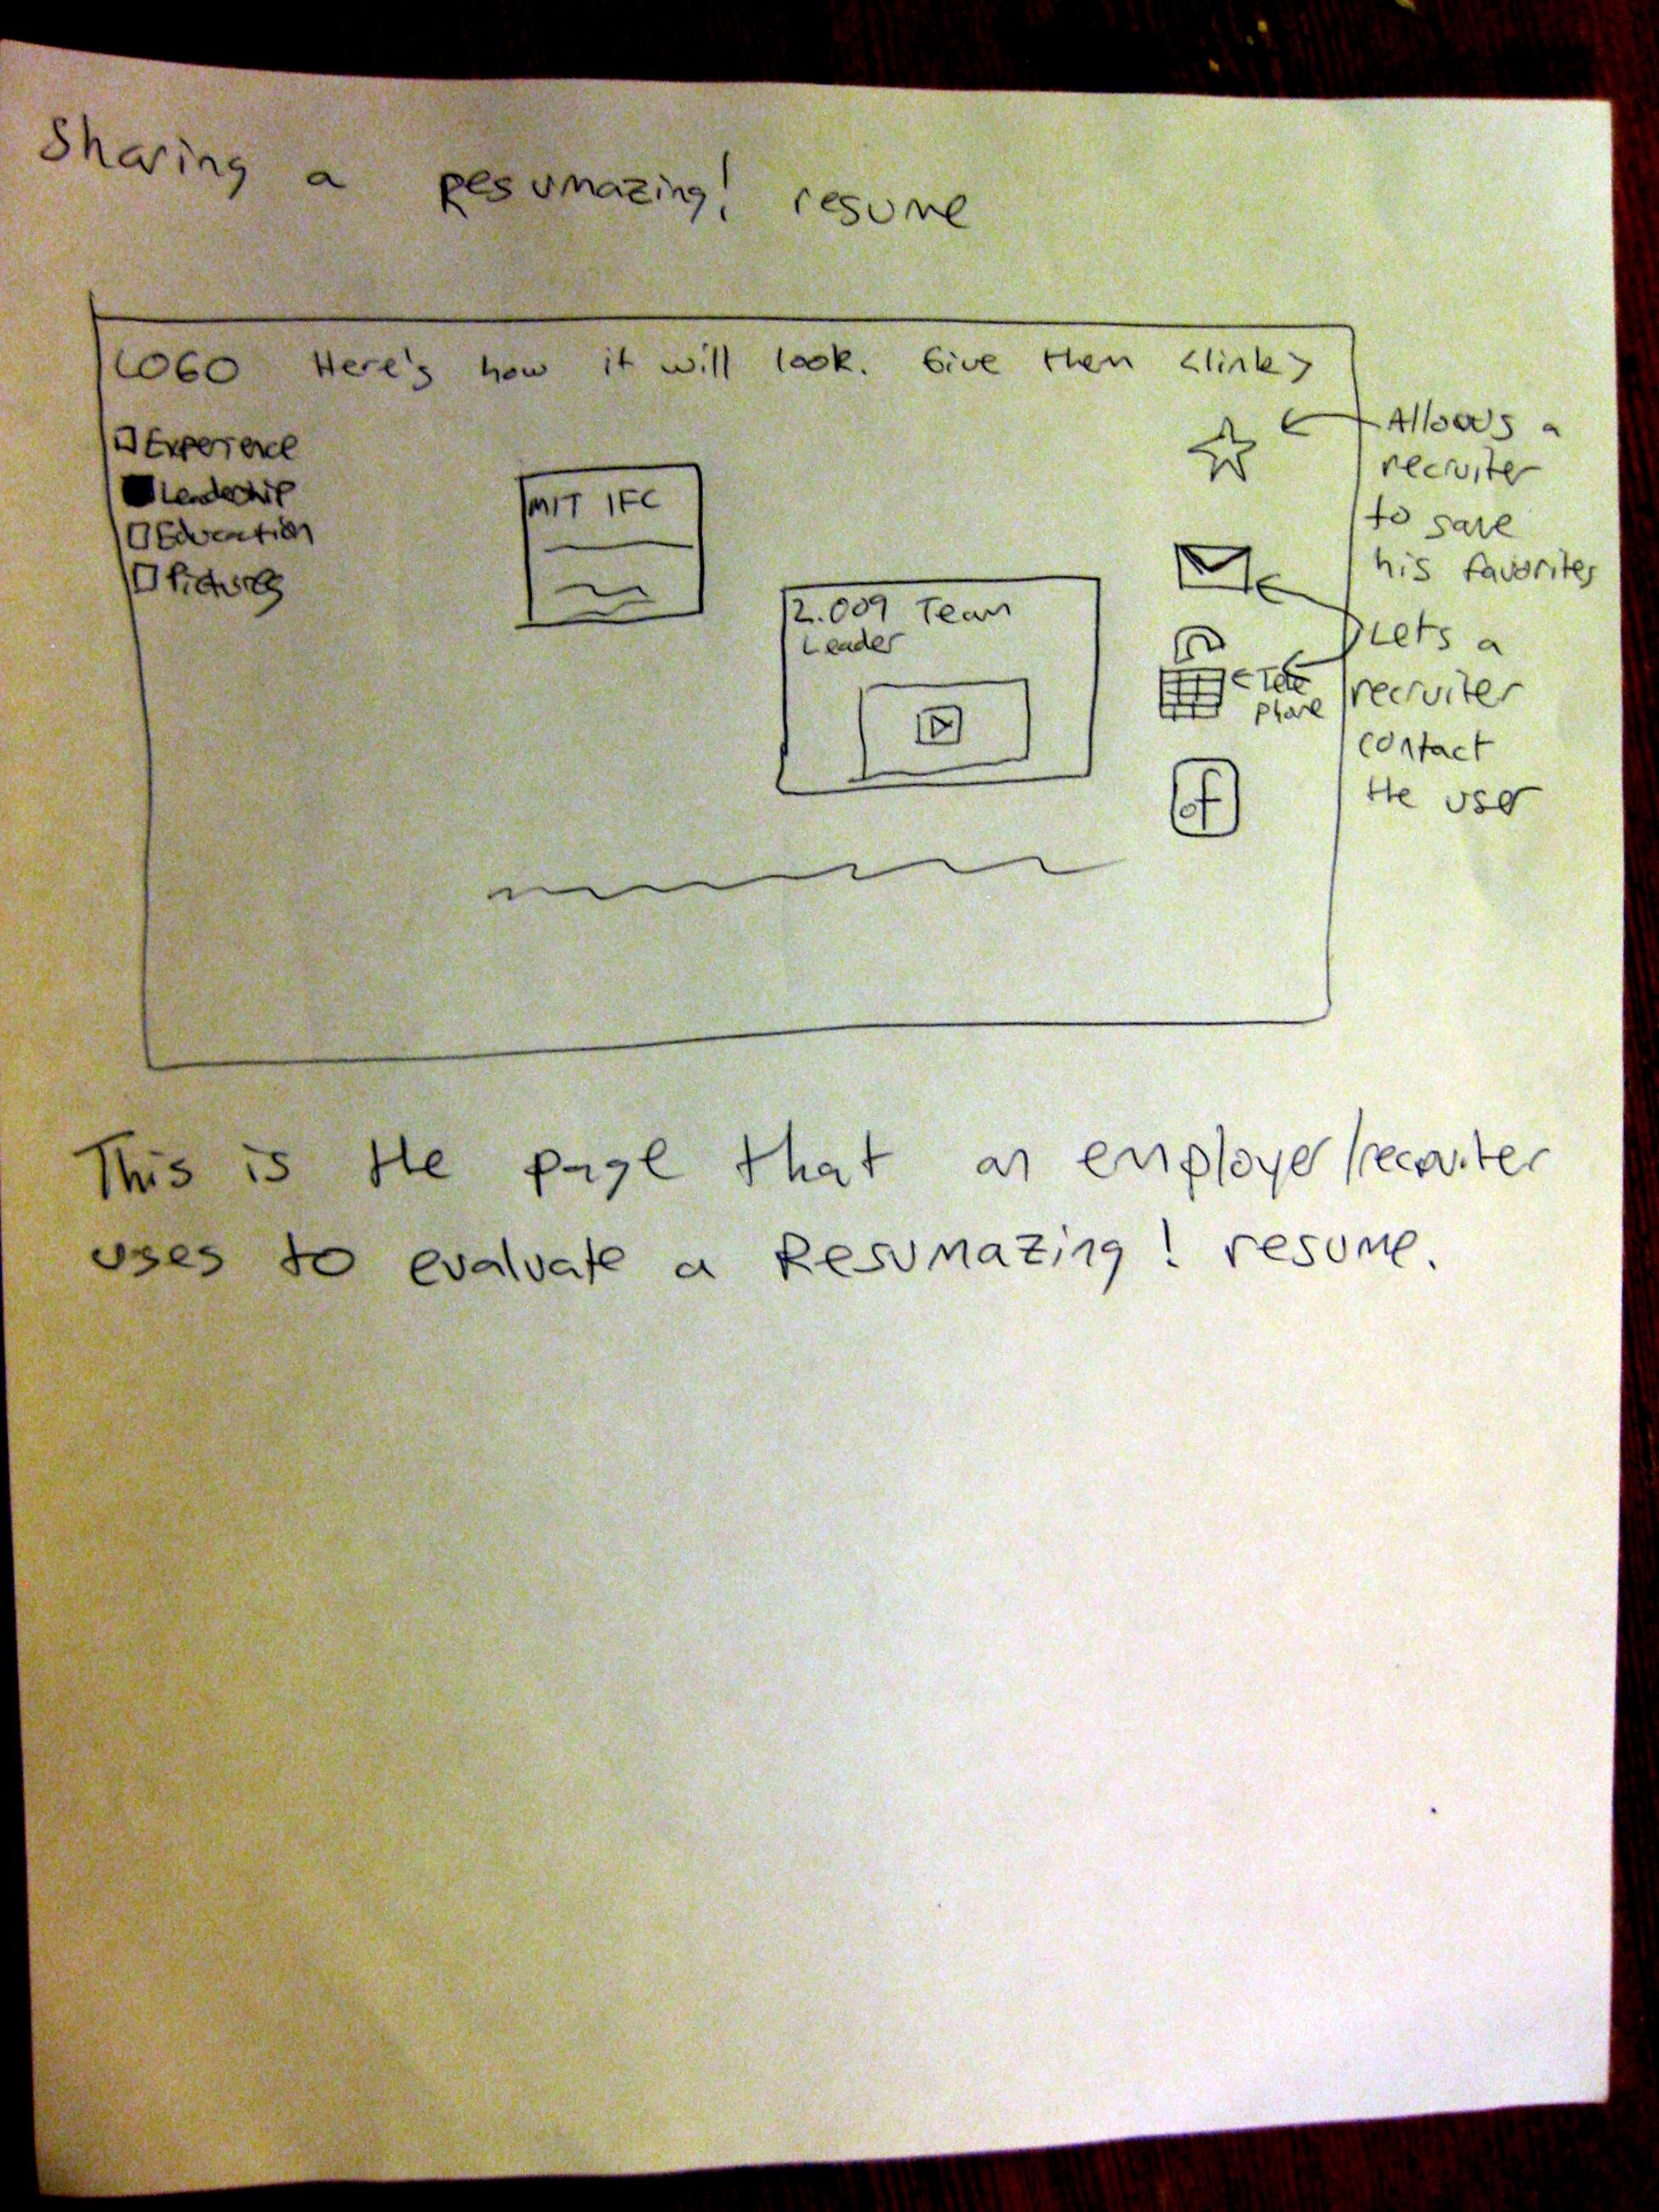 Sharing a Resumazing! resume
LOGO Here's how it will look. Give them <link>
Experience
Leadership
Education
Pictures
MIT IFC
2.009 Team
Leader
Allows a
recruiter
to save
his favorites
Tele
phone
Lets a
recruiter
contact
the user
f
This is the page that an employer/recruiter
uses to evaluate a Resumazing! resume.